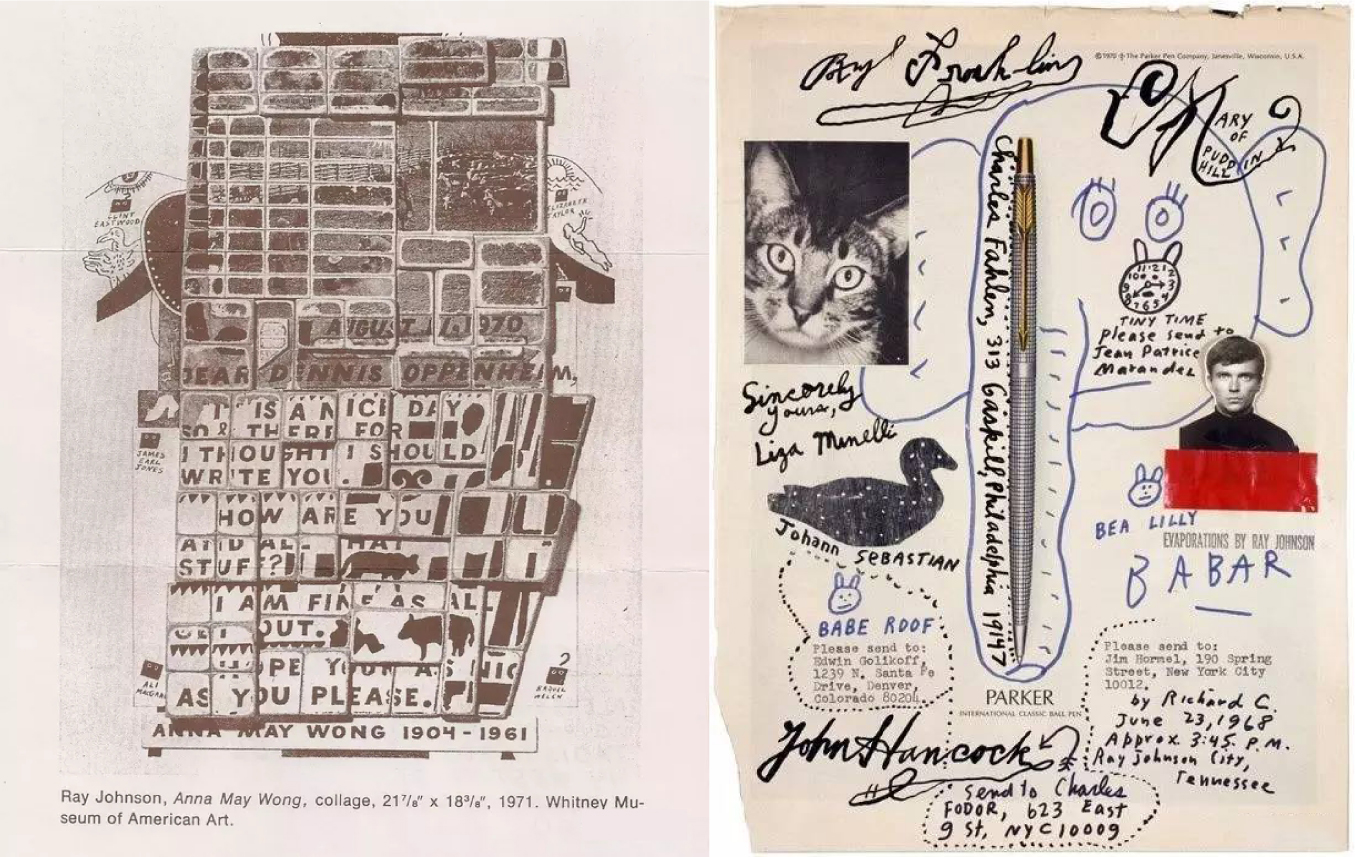 CLINT
EASTWOOD
ELIZABETH
TAYLOR
AUGUST 14, 1970
DEAR DENNIS OPPENHEIM,
IT IS A NICE DAY
SO THERE FOR
I THOUGHT I SHOULD
WRITE YOU.
JAMES
EARL
JONES
HOW ARE YOU
AND ALL THAT
STUFF?
I AM FINE AS ALL
GET OUT.
HOPE YOUR AS NICE
AS YOU PLEASE.
ALI
MACGRAW
RAQUEL
WELCH
ANNA MAY WONG 1904-1961
Ray Johnson, Anna May Wong, collage, 21⅞" x 18⅜", 1971. Whitney Mu-
seum of American Art.
©1970 The Parker Pen Company, Janesville, Wisconsin, U.S.A.
ARY
OF
PUDDIN
HILL
Charles Fahlen, 313 Gaskill, Philadelphia 19147
11 12 1
10 2
9 3
8 4
7 6 5
TINY TIME
please send to
Jean Patrice
Marandel
Sincerely
yours,
Liza Minelli
Johann SEBASTIAN
BEA LILLY
EVAPORATIONS BY RAY JOHNSON
BABAR
BABE ROOF
Please send to:
Edwin Golikoff,
1239 N. Santa Fe
Drive, Denver,
Colorado 80204.
PARKER
INTERNATIONAL CLASSIC BALL PEN
Please send to:
Jim Hormel, 190 Spring
Street, New York City
10012.
by Richard C.
June 23, 1968
Approx 3:45 P.M.
Ray Johnson City,
Tennessee
John Hancock
send to Charles
FODOR, 623 East
9 St, NYC 10009